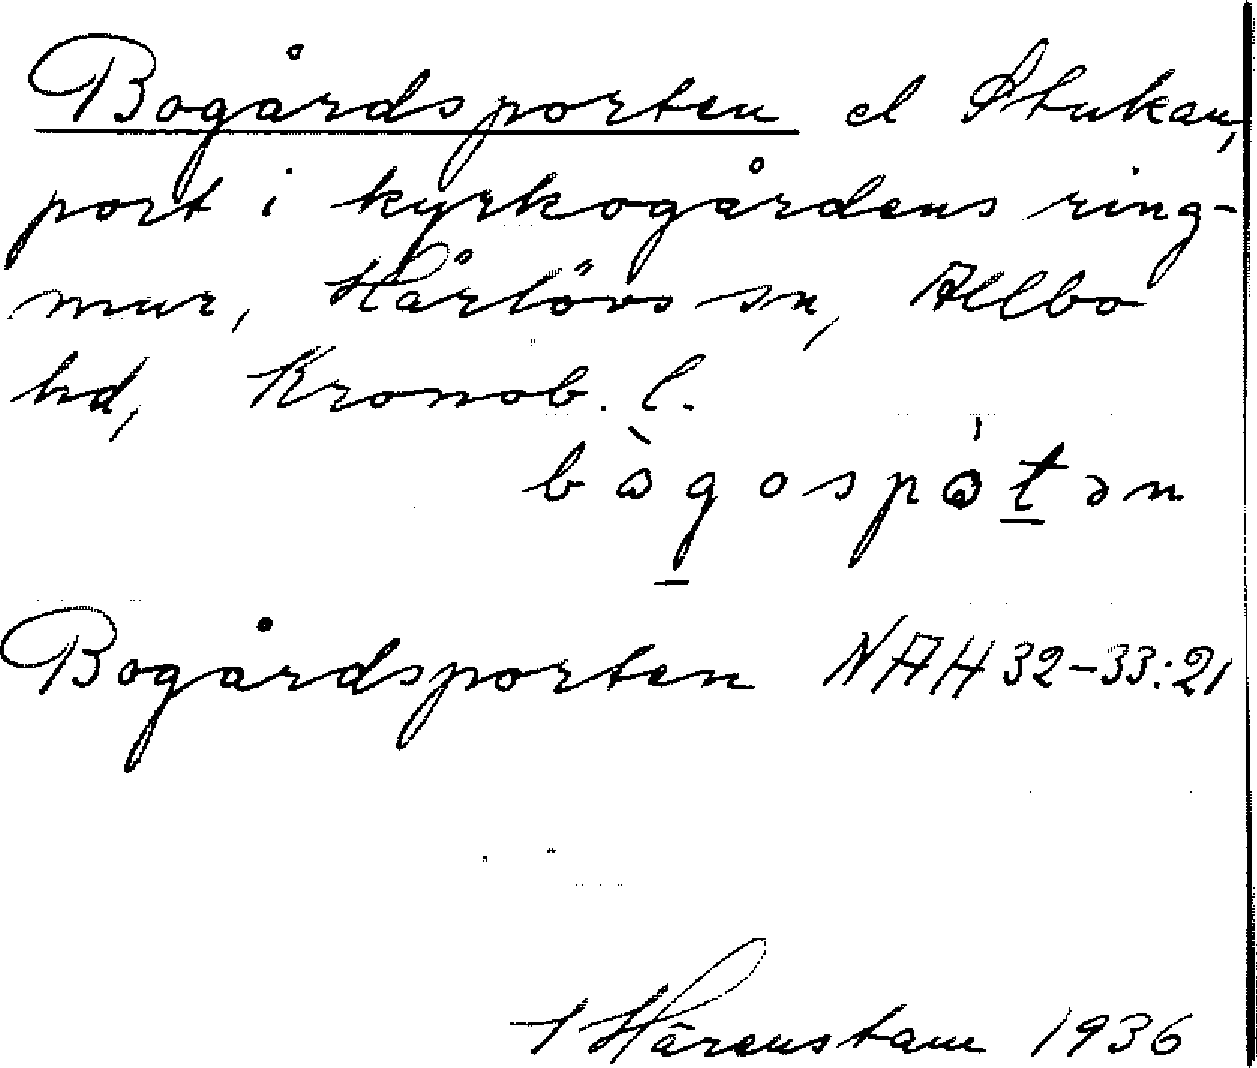 Bogårdsporten el Stukan,
port i kyrkogårdens ring-
mur, Härlövs sn, Allbo
hd, Kronob. l.
bògospó̍tən
Bogårdsporten NAH 32-33:21
I Härenstam 1936